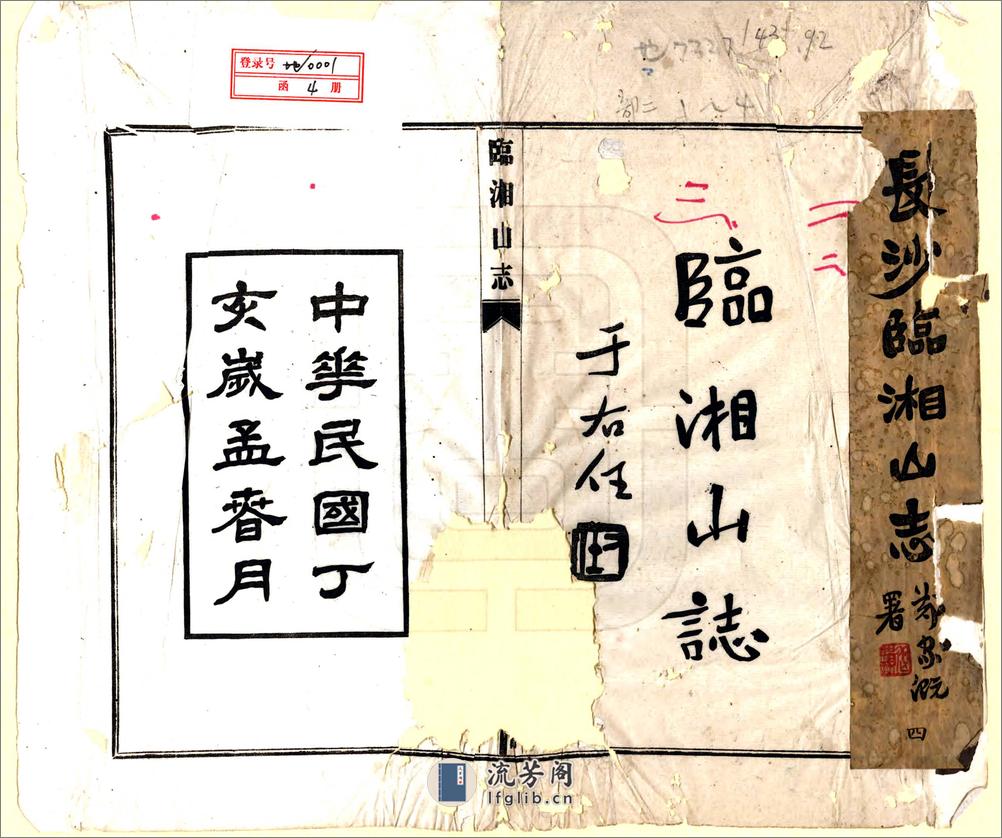 長沙臨湘山志
鄭家溉
署
四
臨湘山誌
于右任
臨湘山志
中華民國丁
亥歲孟春月
登录号 地/0001
函 4 册
地7327
流芳阁
lfglib.cn